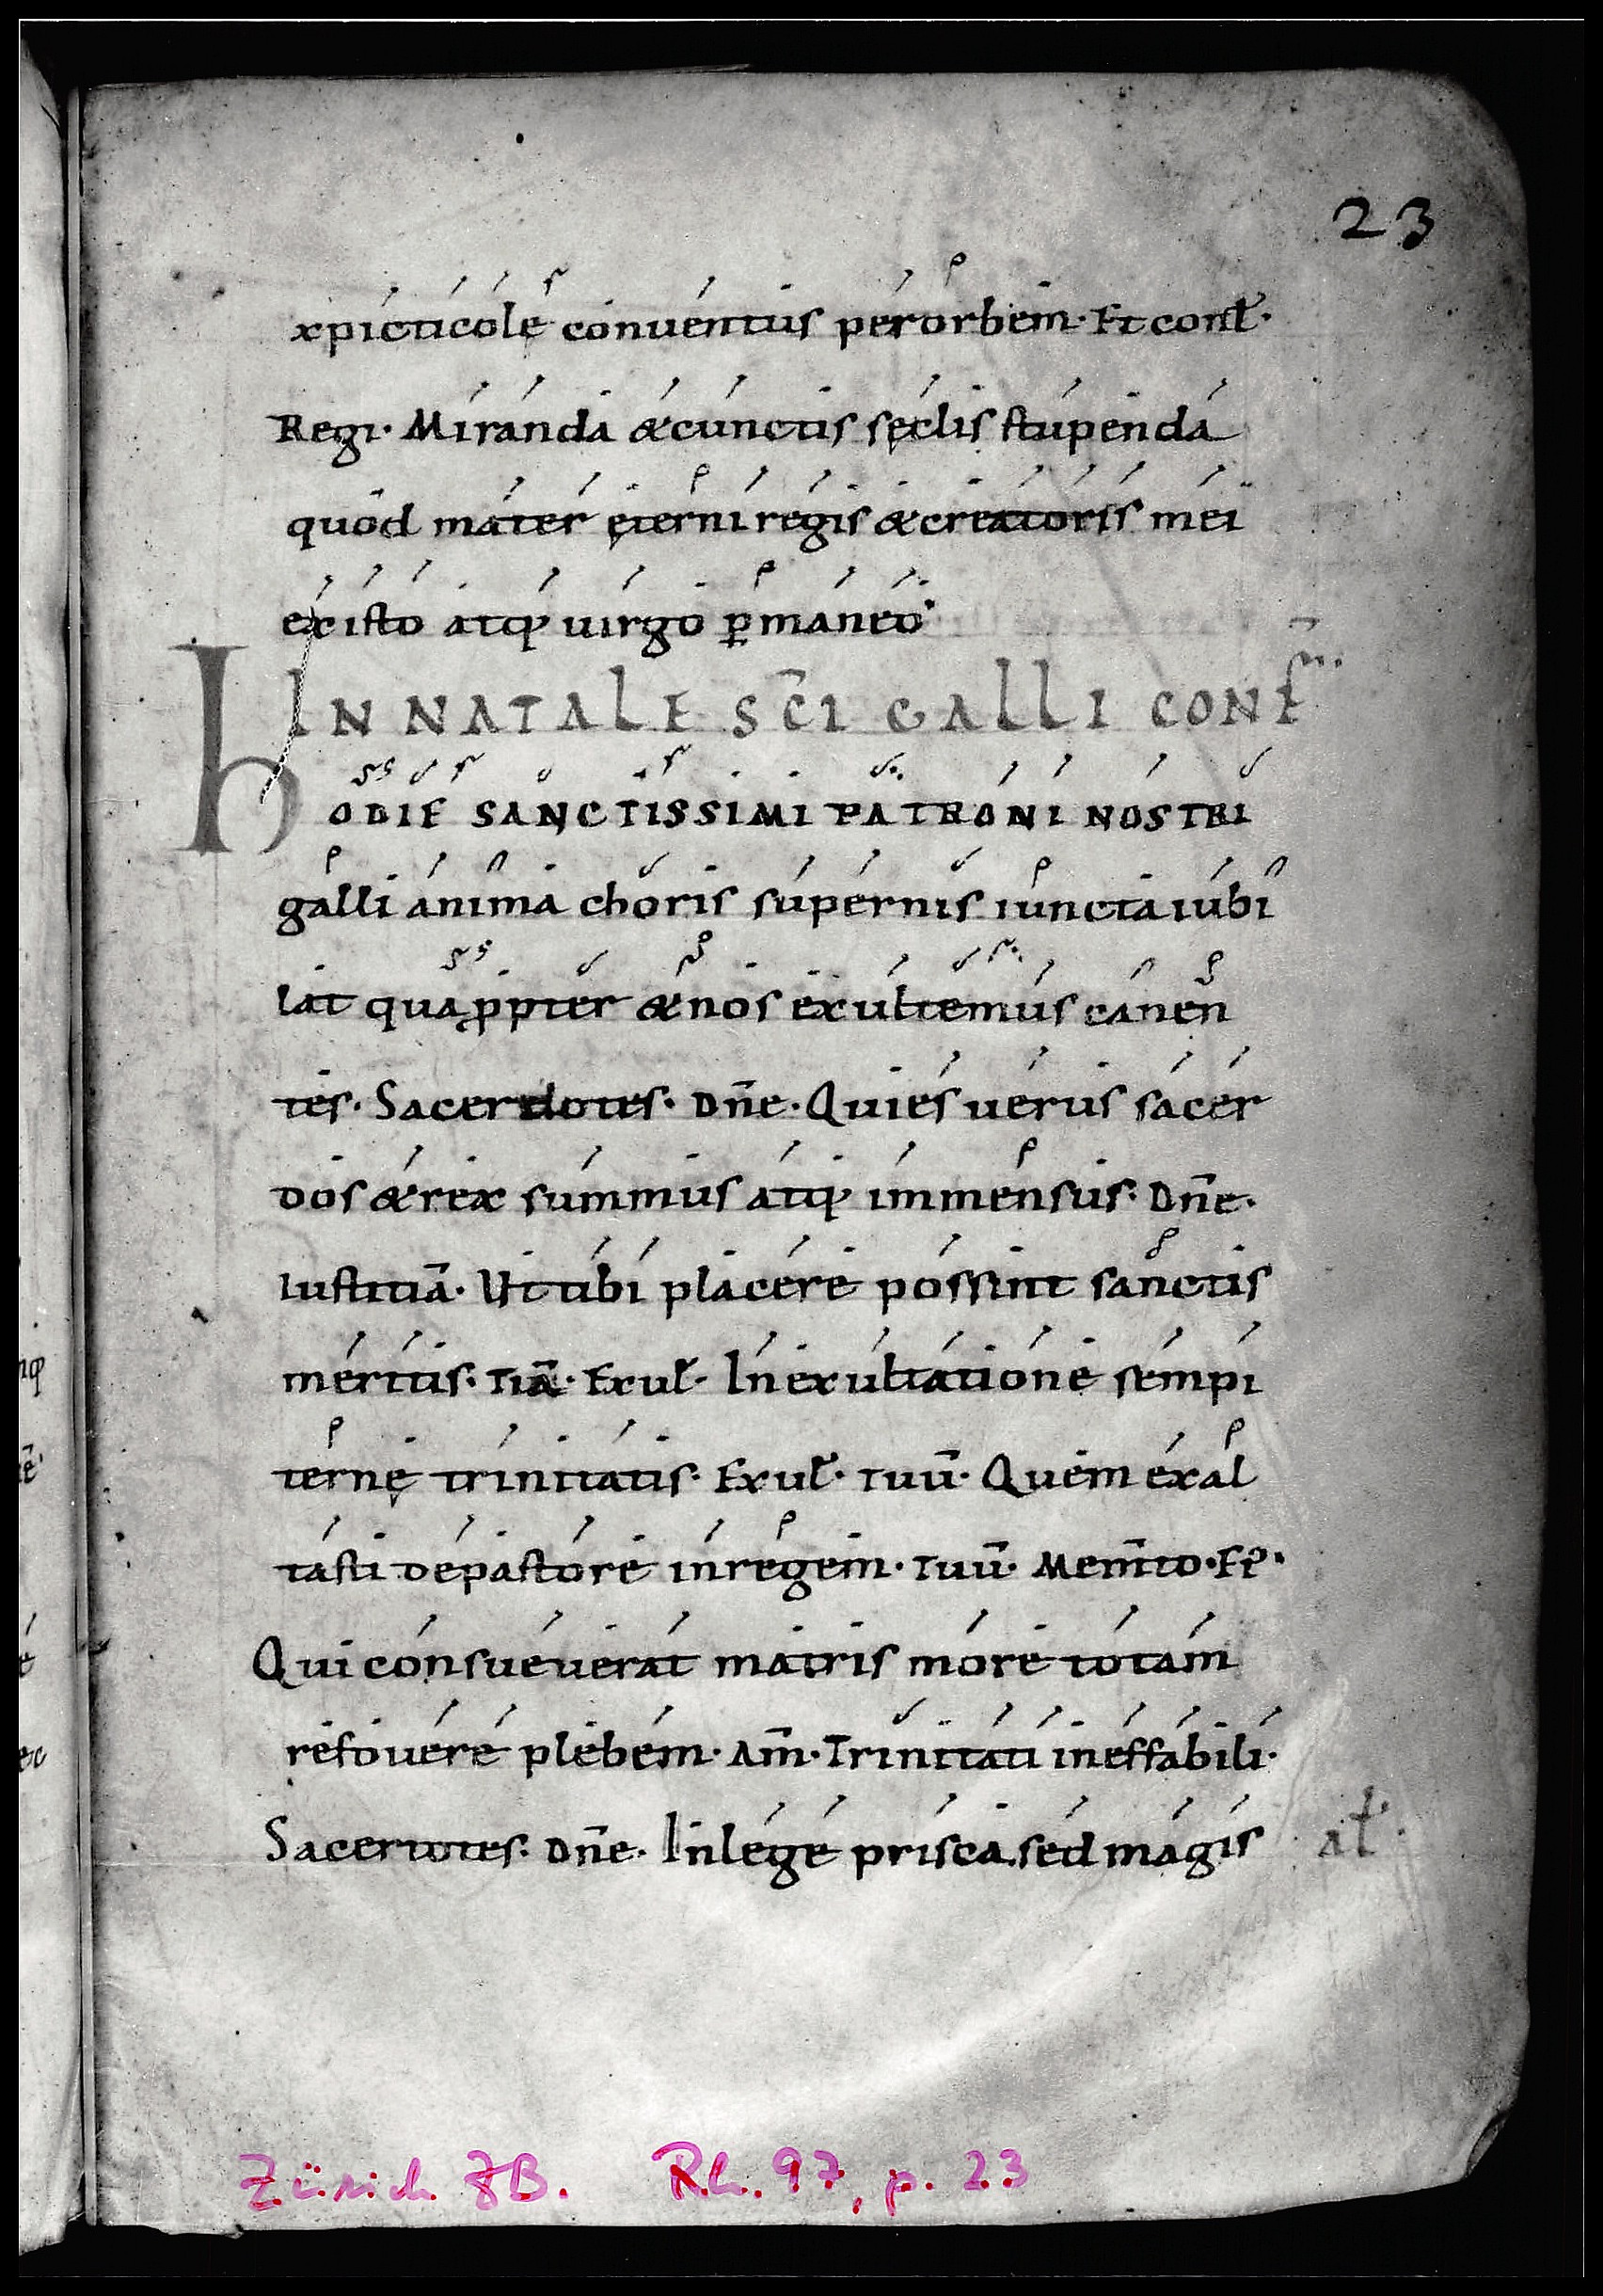 23
xpicticolę conuentus per orbem· Et cont̃·
Regi· Miranda & cunctis sęclis stupenda
quod mater ęterni regis & creatoris mei
existo atq; uirgo p̱maneo·
IN NATALE SC̄I GALLI CONF̄
HODIE SANCTISSIMI PATRONI NOSTRI
galli anima choris supernis iuncta iubi
lat quaꝓpter & nos exultemus canen
tes· Sacerdotes· Dn̄e· Qui es uerus sacer
dos & rex summus atq; immensus· Dn̄e·
Iustitiā· Ut tibi placere possint sanctis
meritis· Tuā· Exul̃· In exultatione sempi
ternę trinitatis· Exul̃· Tuū· Quem exal
tasti de pastore in regem· Tuū· Mem̄to· Et·
Qui consueuerat matris more totam
refouere plebem· Am̄· Trinitati ineffabili·
Sacertotes· Dn̄e· In lege prisca. sed magis
al̃·
nq;
ec
Zürich ZB. Rh. 97, p. 23